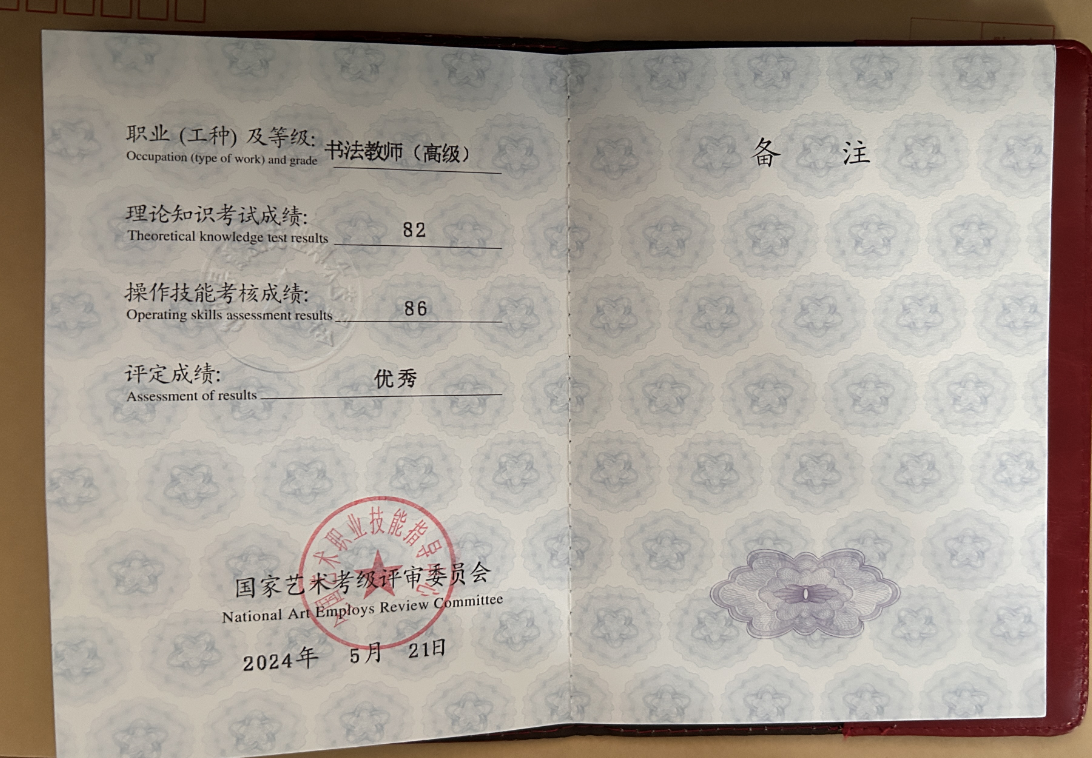 职业 (工种) 及等级: 书法教师（高级）
Occupation (type of work) and grade
理论知识考试成绩: 82
Theoretical knowledge test results
操作技能考核成绩: 86
Operating skills assessment results
评定成绩: 优秀
Assessment of results
术职业技能指导
国家艺术考级评审委员会
National Art Employs Review Committee
2024年 5月 21日
备 注